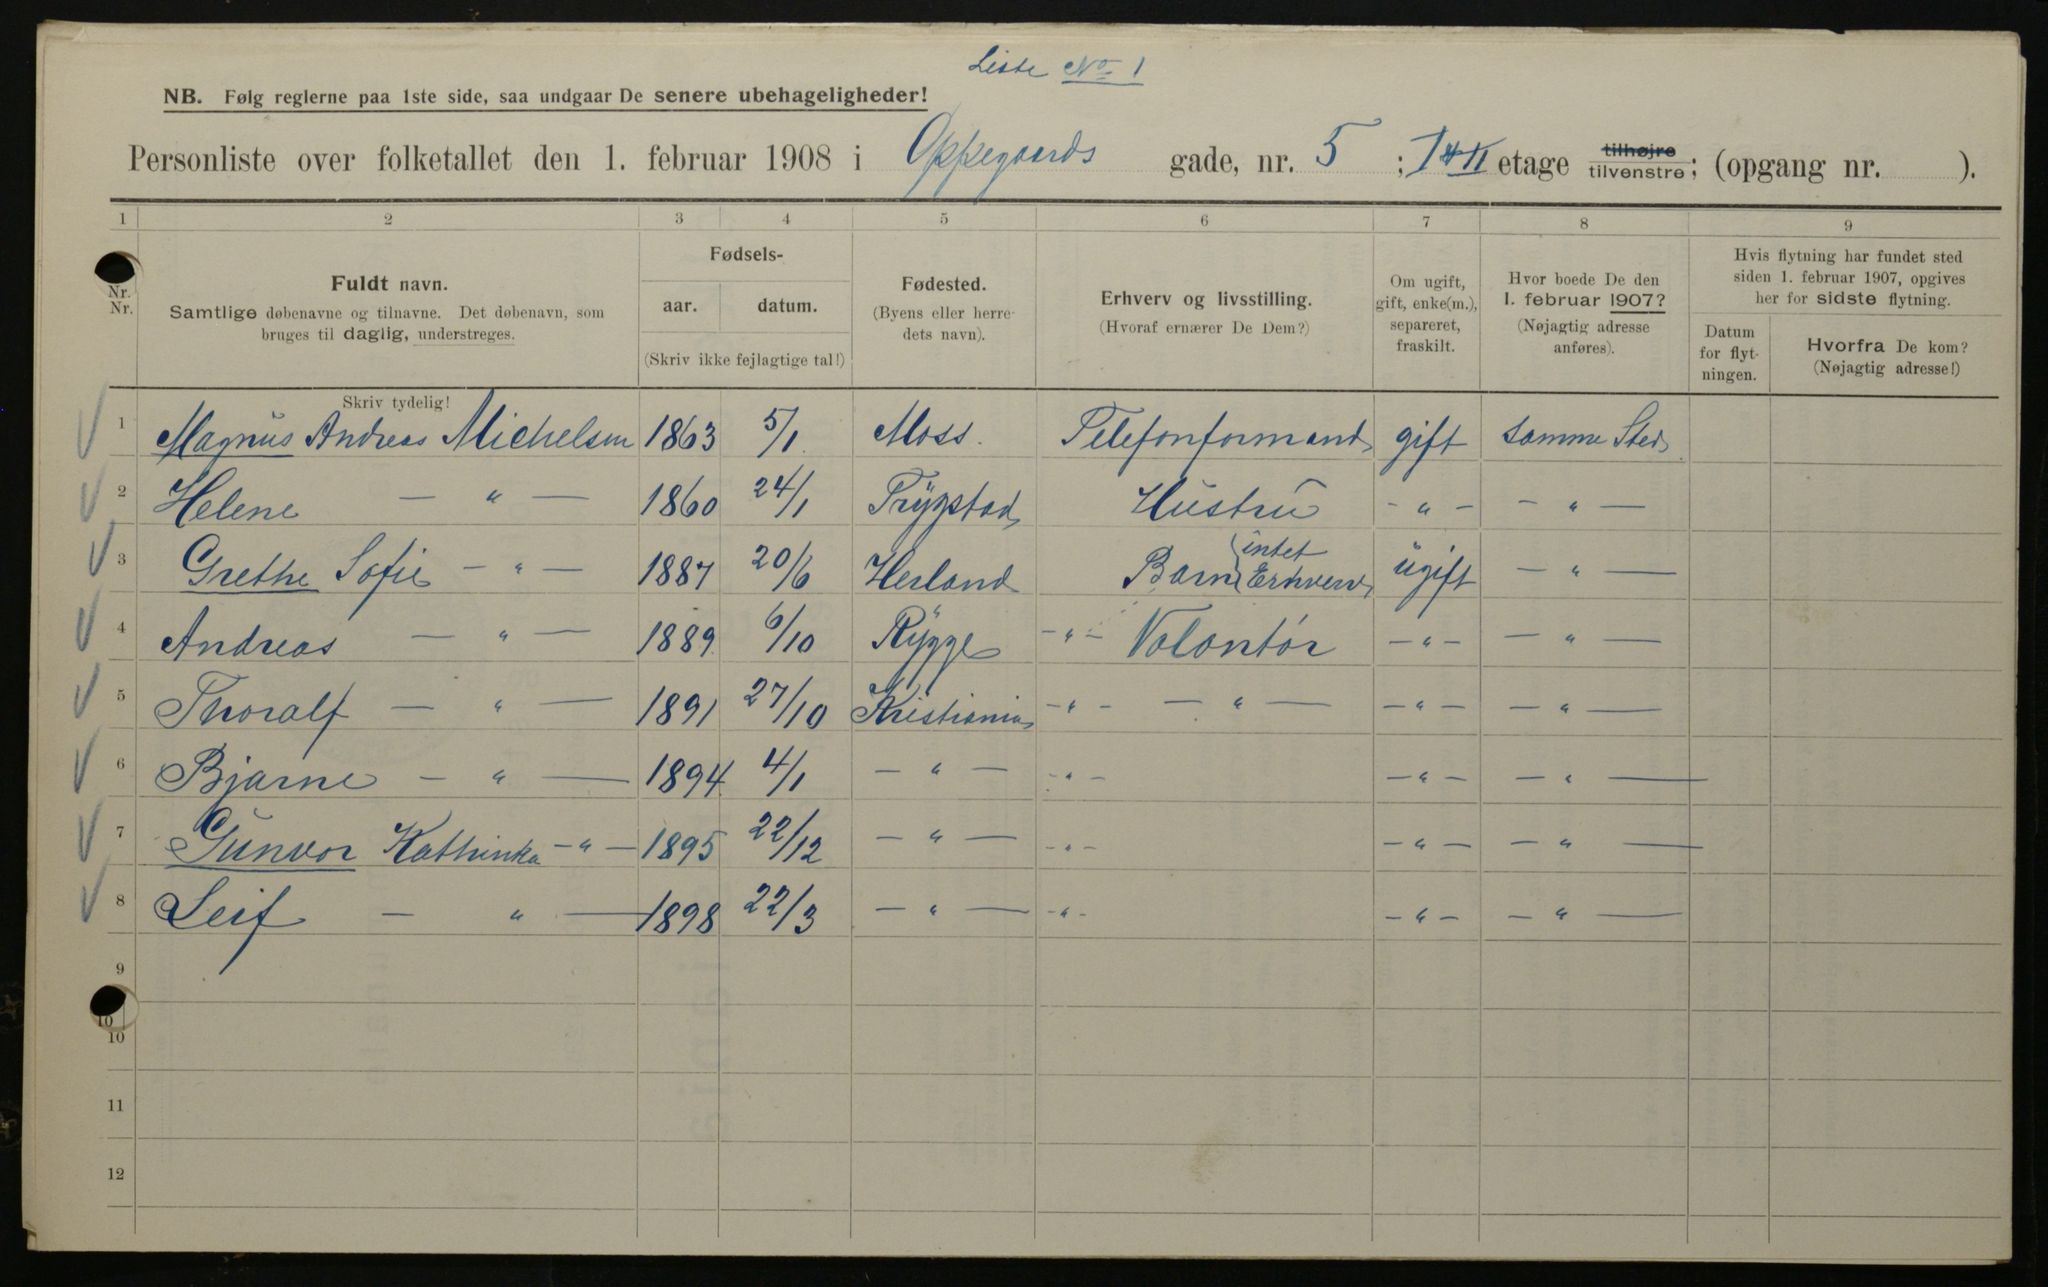 Liste No 1
NB. Følg reglerne paa 1ste side, saa undgaar De senere ubehageligheder!
Personliste over folketallet den 1. februar 1908 i Oppegaards gade, nr. 5 ; I & II etage tilhøjre tilvenstre; (opgang nr. ).
1 2 3 4 5 6 7 8 9
Nr. Nr.
Fuldt navn.
Samtlige døbenavne og tilnavne. Det døbenavn, som
bruges til daglig, understreges.
Skriv tydelig!
Fødsels-
aar. datum.
(Skriv ikke fejlagtige tal!)
Fødested.
(Byens eller herre-
dets navn).
Erhverv og livsstilling.
(Hvoraf ernærer De Dem?)
Om ugift,
gift, enke(m.),
separeret,
fraskilt.
Hvor boede De den
1. februar 1907?
(Nøjagtig adresse
anføres).
Hvis flytning har fundet sted
siden 1. februar 1907, opgives
her for sidste flytning.
Datum
for flyt-
ningen.
Hvorfra De kom?
(Nøjagtig adresse!)
1 Magnus Andreas Michelsen 1863 5/1 Moss. Telefonformand gift samme Sted
2 Helene — " — 1860 24/1 Trygstad Hustru - " - — " —
3 Grethe Sofie — " — 1887 20/6 Herland Barn intet Erhverv ugift — " —
4 Andreas — " — 1889 6/10 Rygge - " - Volontør — " — — " —
5 Thoralf — " — 1891 27/10 Kristiania - " - — " — — " — — " —
6 Bjarne — " — 1894 4/1 — " — - " - — " — — " —
7 Gunvor Kathinka - " — 1895 22/12 — " — - " - — " — — " —
8 Leif — " — 1898 22/3 — " — - " - — " — — " —
9
10
10
11
12